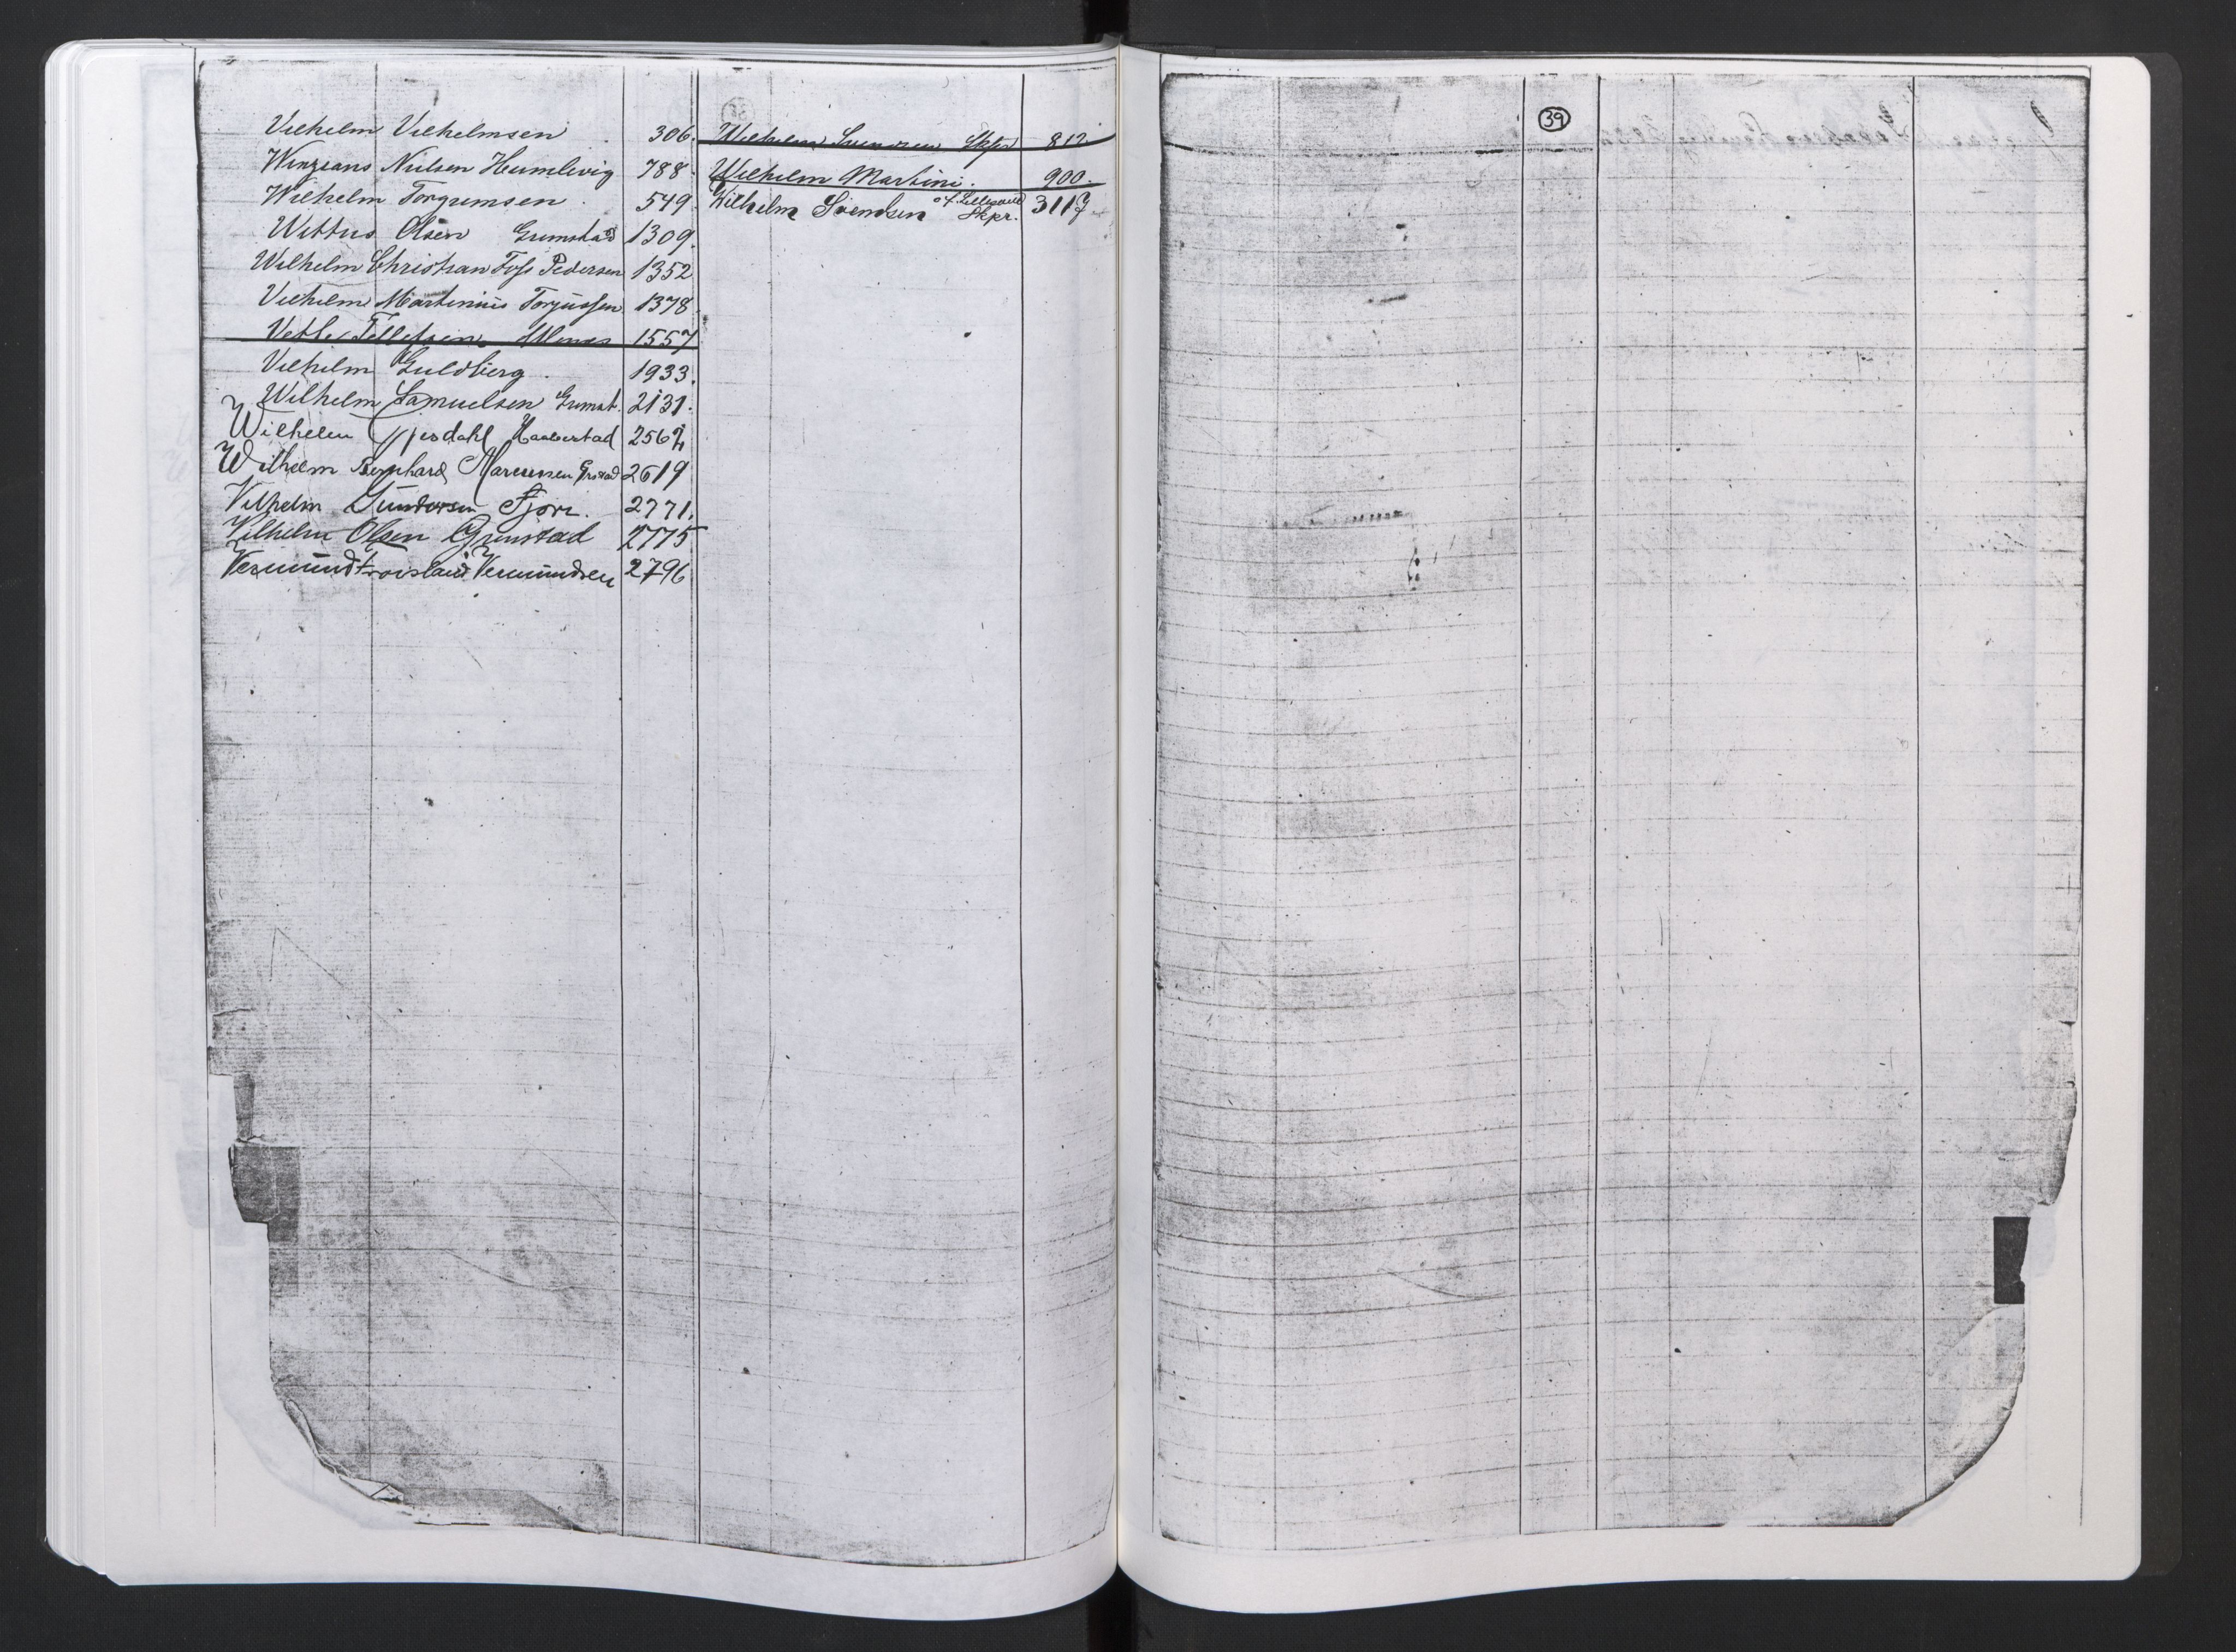 Vilhelm Vilhelmsen 306.
Nielsen Humlevig 788.
Wilhelm 549.
Wittus Olsen Grimstad 1309.
Wilhelm Christian Foss Pedersen 1352
Vilhelm Martinius Torjussen 1378.
Vetle Tellefsen 1557
Vilhelm Guldberg. 1933.
Wilhelm Samuelsen Grimst. 2131.
Wilhelm 2562
Wilhelm Bernhard Marcussen Grstad 2619
Vilhelm Gundersen Fjære. 2771.
Vilhelm Olsen Grimstad 2775
Vermund Vermundsen 2796
Wilhelm Svendsen Skpr 812
Wilhelm Martini. 900.
Wilhelm Svendsen af Lillesand Skpr. 3117
39